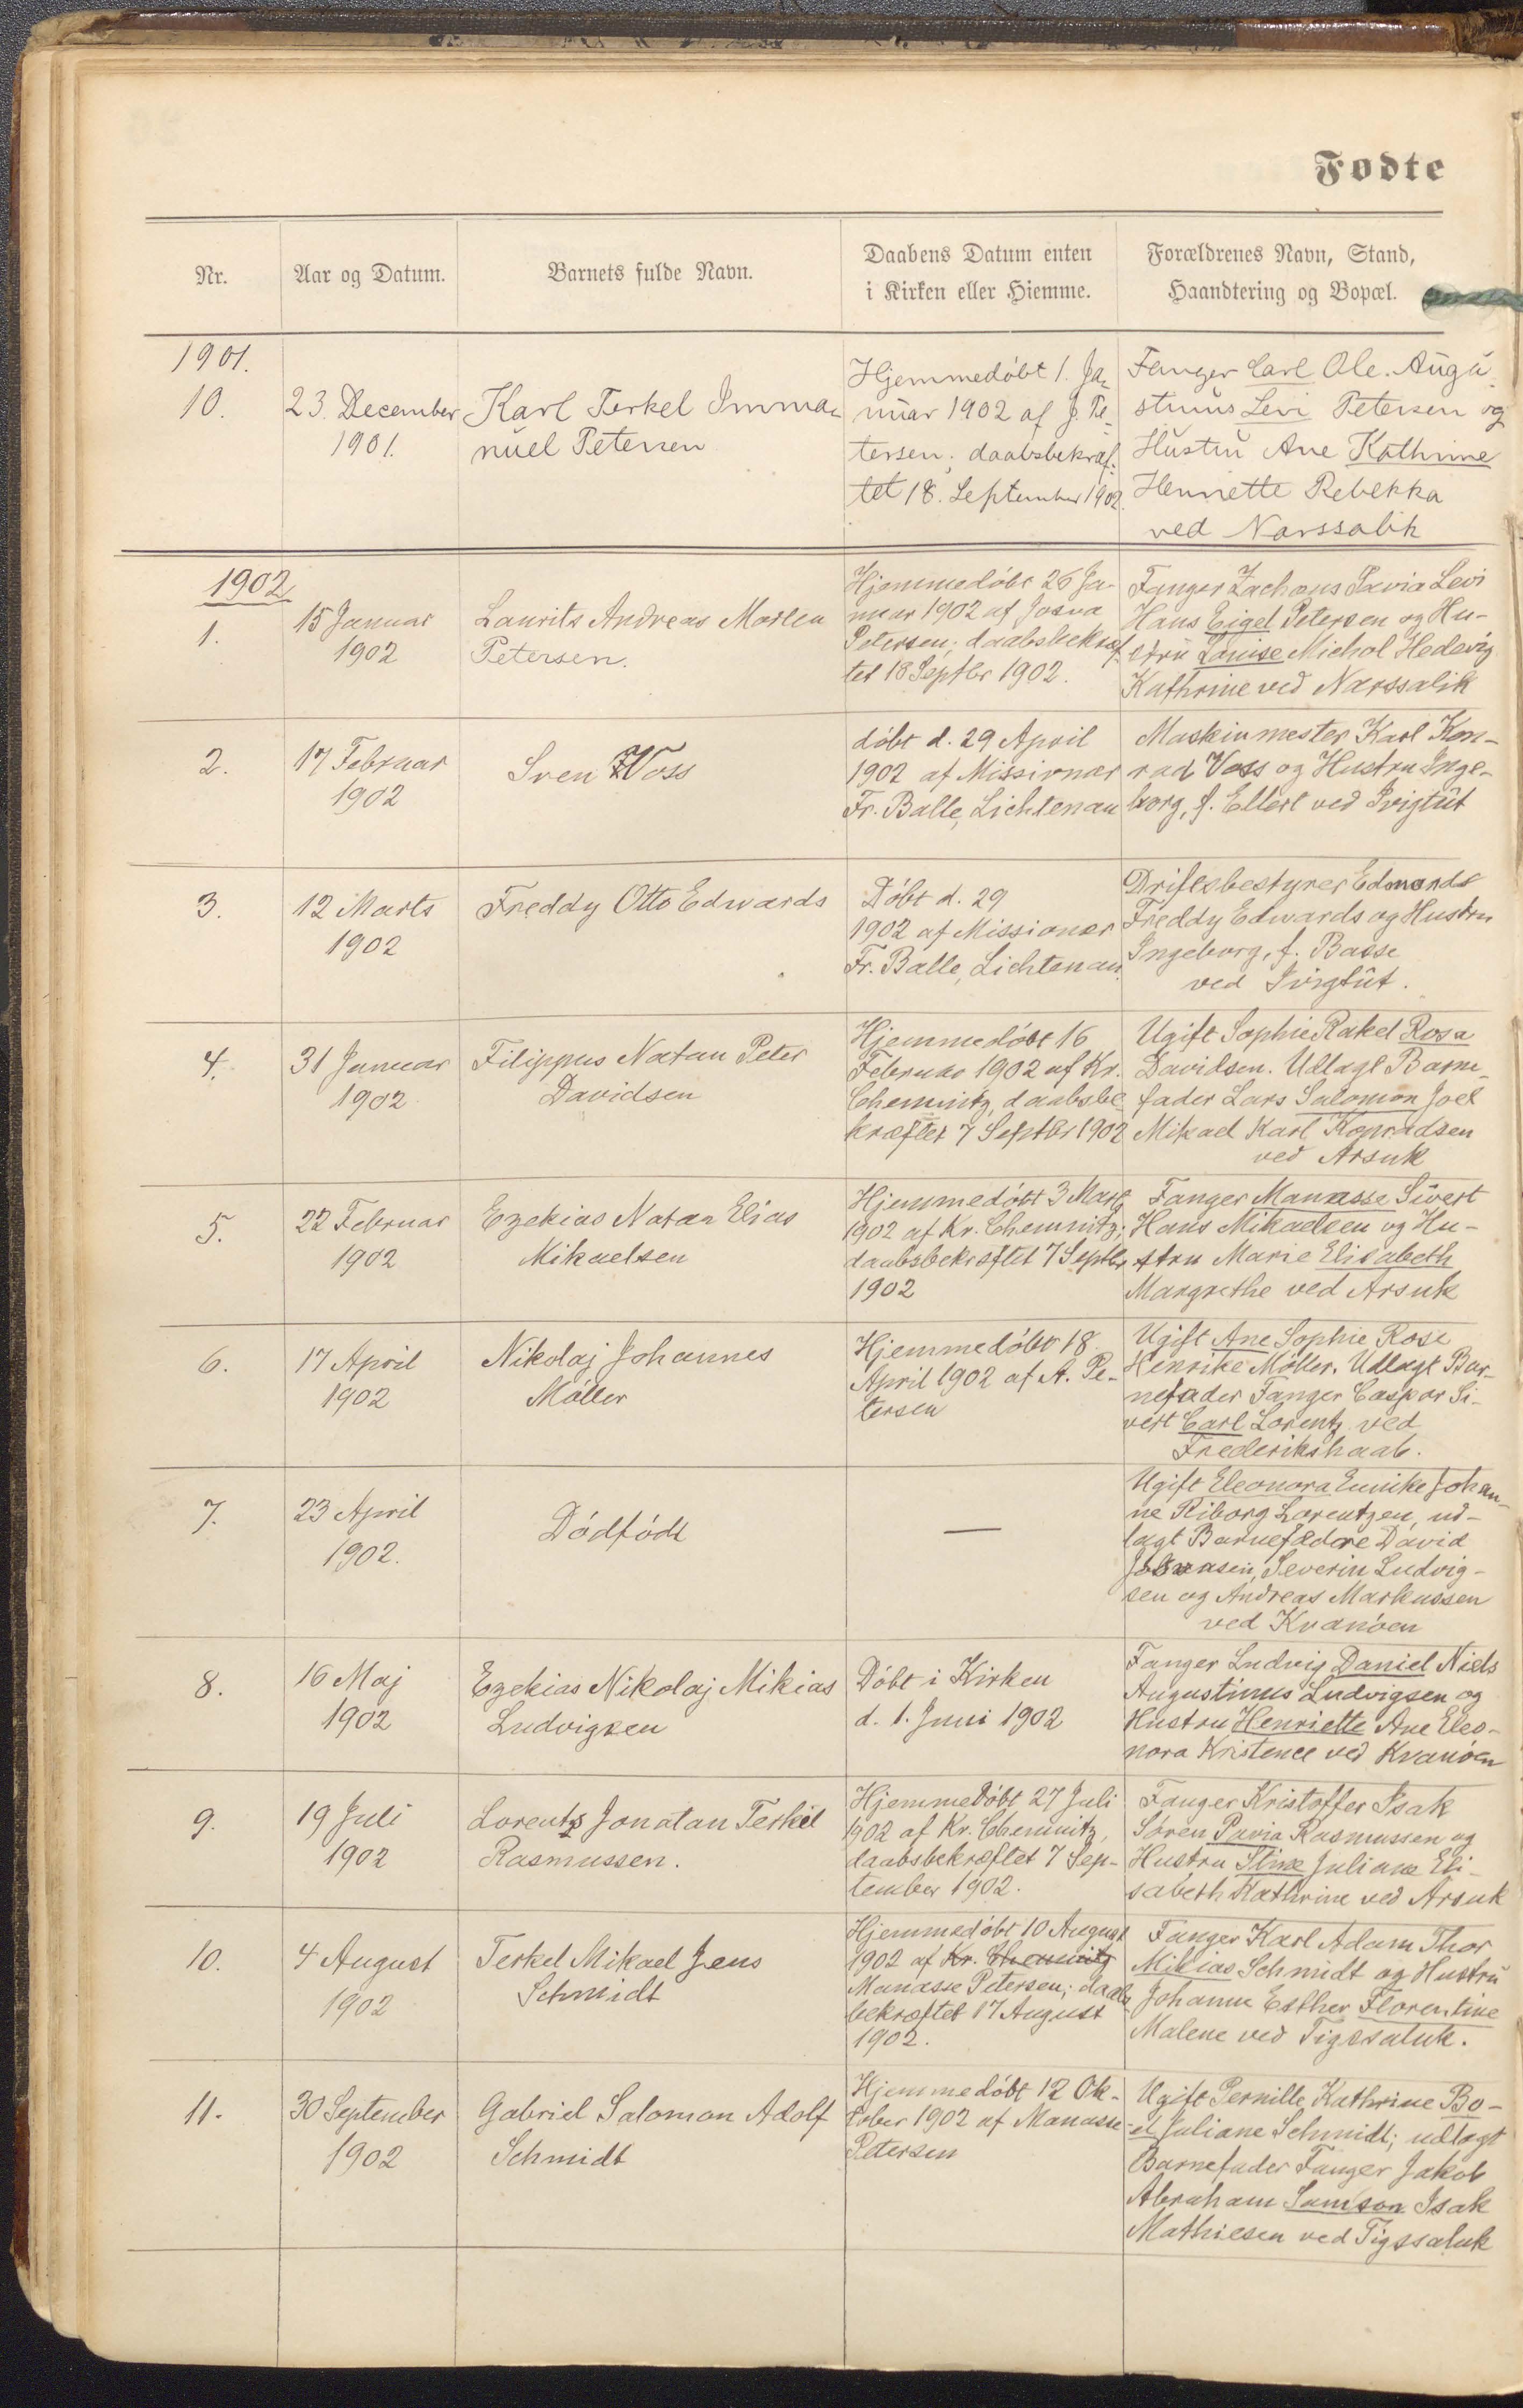 Fødte
Nr.
Aar og Datum.
Barnets fulde Navn.
Daabens Datum enten
i Kirken eller Hiemme.
Forældrenes Navn, Stand,
Haandtering og Bopæl.
1901.
10.
23. December
1901.
Karl Terkel Imma-
nuel Petersen
Hjemmedöbt 1. Ja-
nuar 1902 af J. Pe-
tersen; daabsbekræf-
tet 18. September 1902.
Fanger Carl Ole Augu-
stinus Levi Petersen og
Hustru Ane Kathrine
Henriette Rebekka
ved Narssalik
1902
1.
15 Januar
1902
Laurits Andreas Morten
Petersen.
Hjemmedöbt 26 Ja-
nuar 1902 af Josva
Petersen; daabsbekræf-
tet 18 Septbr 1902.
Fanger Zachæus Pavia Levi
Hans Eigel Petersen og Hu-
stru Louise Michol Hedevig
Kathrine ved Narssalik
2.
17 Februar
1902
Sven Voss
döbt d. 29 April
1902 af Missionær
Fr. Balle, Lichtenau
Maskinmester Karl Kon-
rad Voss og Hustru Inge-
borg, f. Ellert ved Ivigtût
3.
12 Marts
1902
Freddy Otto Edwards
Döbt d. 29
1902 af Missionær
Fr. Balle, Lichtenau.
Driftsbestyrer Edmonds
Freddy Edwards og Hustru
Ingeborg, f. Basse
ved Ivigtût.
4.
31 Januar
1902
Filippus Natan Peter
Davidsen
Hjemmedöbt 16
Februar 1902 af Kr.
Chemnitz, daabsbe-
kræftet 7 Septbr 1902
Ugift Sophie Rakel Rosa
Davidsen. Udlagt Barne-
fader Lars Salomon Joel
Mikael Karl Konradsen
ved Arsuk
5.
22 Februar
1902
Ezekias Natan Elias
Mikaelsen
Hjemmedöbt 3 Marts
1902 af Kr. Chemnitz;
daabsbekræftet 7 Septbr
1902
Fanger Manasse Sivert
Hans Mikaelsen og Hu-
stru Marie Elisabeth
Margrethe ved Arsuk
6.
17 April
1902
Nikolaj Johannes
Möller
Hjemmedöbt 18
April 1902 af A. Pe-
tersen
Ugift Ane Sophie Rose
Henrike Möller. Udlagt Bar-
nefader Fanger Caspar Si-
vert Carl Lorentz ved
Frederikshaab.
7.
23 April
1902.
Dödfödt
—
Ugift Eleonora Eunike Johan-
ne Riborg Lorentzen, ud-
lagt Barnefædre David
Severin Ludvig-
sen og Andreas Markussen
ved Kvanöen
8.
16 Maj
1902
Ezekias Nikolaj Mikias
Ludvigsen
Döbt i Kirken
d. 1. Juni 1902
Fanger Ludvig Daniel Niels
Augustinus Ludvigsen og
Hustru Henriette Ane Eleo-
nora Kristence ved Kvanöen
9.
19 Juli
1902
Lorentz Jonatan Terkel
Rasmussen.
Hjemmedöbt 27 Juli
1902 af Kr. Chemnitz,
daabsbekræftet 7 Sep-
tember 1902.
Fanger Kristoffer Isak
Sören Pavia Rasmussen og
Hustru Stine Juliane Eli-
sabeth Kathrine ved Arsuk
10.
4 August
1902
Terkel Mikael Jens
Schmidt
Hjemmedöbt 10 August
1902 af Kr. Chemnitz
Manasse Petersen; daabs-
bekræftet 17 August
1902.
Fanger Karl Adam Thor
Mikias Schmidt og Hustru
Johanne Esther Florentine
Malene ved Tigssaluk.
11.
30 September
1902
Gabriel Salomon Adolf
Schmidt
Hjemmedöbt 12 Ok-
tober 1902 af Manasse
Petersen
Ugift Pernille Kathrine Bo-
el Juliane Schmidt; udlagt
Barnefader Fanger Jakob
Abraham Samson Isak
Mathiesen ved Tigssaluk